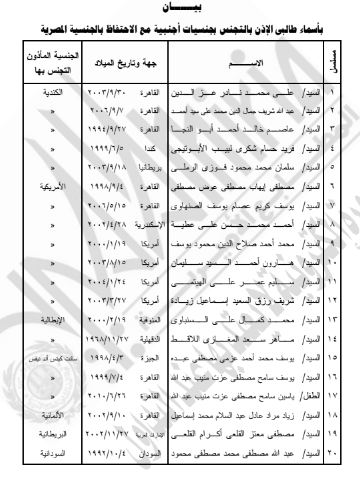 بيـــــان
بأسماء طالبى الإذن بالتجنس بجنسيات أجنبية مع الاحتفاظ بالجنسية المصرية
مسلسل الاســـــم جهة وتاريخ الميلاد الجنسية المأذون التجنس بها
١ السيد/ على محمد نادر عز الدين القاهرة ٢٠٠٣/٩/٣٠ الكندية
٢ السيد/ عبد الله شريف جمال الدين محمد على سيد أحمد القاهرة ٢٠٠٦/٩/٧ »
٣ السيد/ عاصم خالد أحمد أبو النجا القاهرة ١٩٩٤/٩/٢٧ »
٤ السيد/ فريد حسام شكرى لبيب الأبوتيجى كندا ١٩٩٩/٦/٥ »
٥ السيد/ سلمان محمد محمود فوزى الرملى بريطانيا ٢٠٠٣/٩/١٨ »
٦ السيد/ مصطفى إيهاب مصطفى عوض مصطفى القاهرة ١٩٩٨/٩/٤ الأمريكية
٧ السيد/ يوسف كريم عصام يوسف الصنهاوى القاهرة ٢٠٠٦/٥/١٥ »
٨ السيد/ أحمد محمد حسن على عطية الإسكندرية ٢٠٠٢/٤/٢٨ »
٩ السيد/ محمد أحمد صلاح الدين محمود يوسف أمريكا ٢٠٠٠/١/١٩ »
١٠ السيد/ هارون أحمد السيد سليمان أمريكا ٢٠٠٣/٨/١٥ »
١١ السيد/ سليم عمر على الهيتمى أمريكا ٢٠٠٤/١/٢٤ »
١٢ السيد/ شريف رزق السعيد إسماعيل زيادة أمريكا ٢٠٠٣/٣/٢٧ »
١٣ السيد/ محمد كمال على السنباوى المنوفية ٢٠٠٠/٢/١٩ الإيطالية
١٤ السيد/ ماهر سعد المغازى اللاقط الدقهلية ١٩٦٨/١١/٢٧ »
١٥ السيد/ يوسف محمد أحمد عزمى مصطفى عبده الجيزة ١٩٩٨/٤/٣ سانت كيتس أند نيفس
١٦ السيد/ يوسف سامح مصطفى عزت منيب عبد الله القاهرة ١٩٩٩/٧/٤ »
١٧ الطفل/ ياسين سامح مصطفى عزت منيب عبد الله القاهرة ٢٠١٠/٦/٢٦ »
١٨ السيد/ زياد مراد عادل عبد السلام محمد إسماعيل القاهرة ٢٠٠٢/٩/١٠ الألمانية
١٩ السيد/ مصطفى معتز القلعى أكرام القلعى ٢٠٠٢/١١/٢٧ البريطانية
٢٠ السيد/ عبد الله مصطفى محمد مصطفى محمود السودان ١٩٩٢/١٠/٤ السودانية